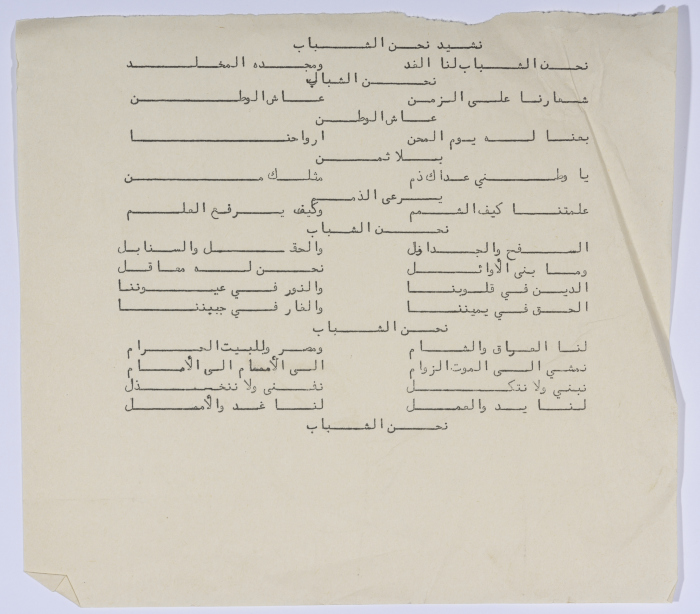 نشيد نحن الشباب
نحن الشباب لنا الغد ومجده المخلد
نحن الشباب
شعارنا على الزمن عاش الوطن
عاش الوطن
بعنا له يوم المحن ارواحنا
بلا ثمن
يا وطني عداك ذم مثلك من
يرعى الذمم
علمتنا كيف الشمم وكيف يرفع العلم
نحن الشباب
السفح والجداول والحقل والسنابل
وما بنى الأوائل نحن له معاقل
الدين في قلوبنا والنور في عيوننا
الحق في يميننا والغار في جبيننا
نحن الشباب
لنا العراق والشام ومصر وللبيت الحرام
نمشي الى الموت الزوام الى الأمام الى الأمام
نبني ولا نتكل نفنى ولا ننخذل
لنا يد والعمل لنا غد والأمل
نحن الشباب